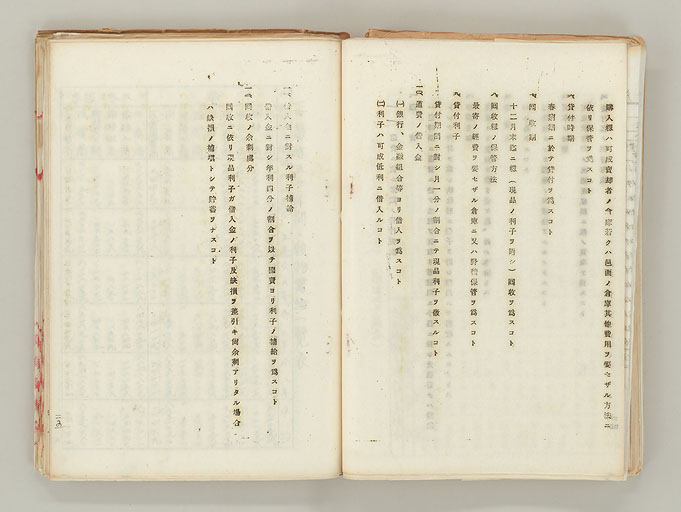 購入糧ハ可成賣却者ノ倉庫若クハ邑面ノ倉庫其他費用ヲ要セザル方法ニ
依リ保管ヲ爲スコト
貸付時期
春窮期ニ於テ貸付ヲ爲スコト
回收期
十二月末迄ニ糧(現品ノ利子ヲ附シ)回收ヲ爲スコト
八、回收糧ノ保管方法
最寄ノ經費ヲ要セザル倉庫ニ又ハ野積保管ヲ爲スコト
九、貸付利子
貸付期間ニ對シ月一分ノ割合ニテ現品利子ヲ徴スルコト
一〇、運費ノ借入金
㈠銀行、金融組合等ヨリ借入ヲ爲スコト
㈡利子ハ可成低利ニ借入ルコト
借入金ニ對スル利子補給
借入金ニ對シ年利四分ノ割合ヲ以テ國費ヨリ利子ノ補給ヲ爲スコト
回收ノ余剰處分
回收ニ依リ現品利子ガ借入金ノ利子及缺損ヲ差引キ尙余剰アリタル場合
ハ缺損ノ補塡トシテ貯蓄ヲナスコト